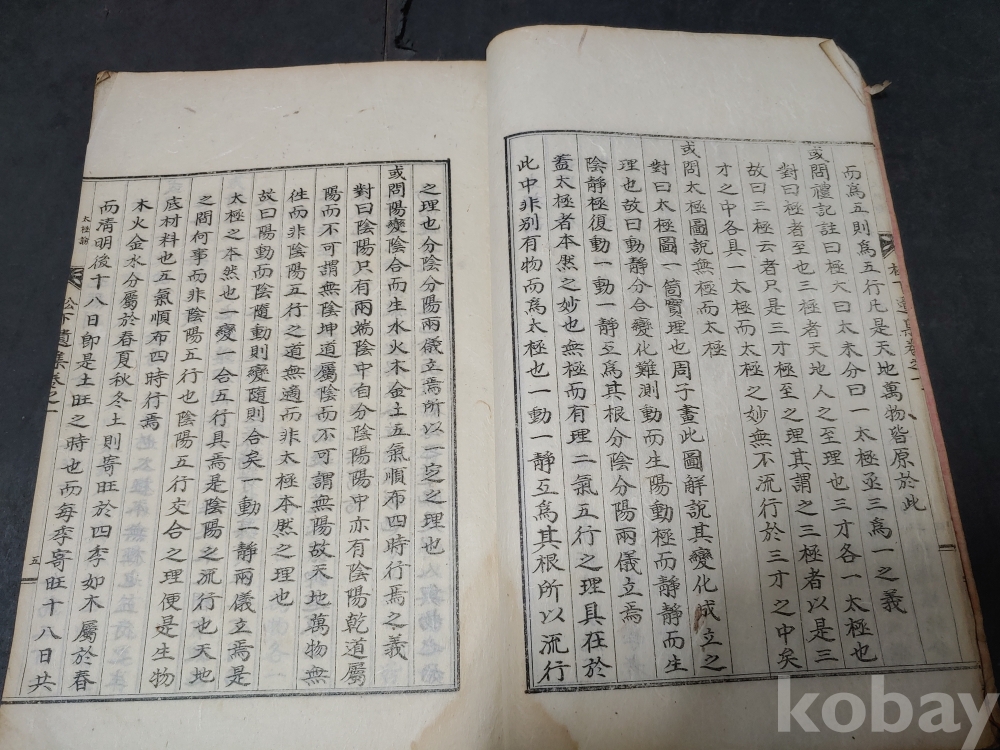 而爲五則爲五行凡是天地萬物皆原於此
或問禮記註曰極大曰太未分曰一太極函三爲一之義
對曰極者至也三極者天地人之至理也三才各一太極也
故曰三極云者只是三才極至之理其謂之三極者以是三
才之中各具一太極而太極之妙無不流行於三才之中矣
或問太極圖說無極而太極
對曰太極圖一箇實理也周子畫此圖解說其變化成立之
理也故曰動靜分合變化難測動而生陽動極而靜靜而生
陰靜極復動一動一靜互爲其根分陰分陽兩儀立焉
蓋太極者本然之妙也無極而有理二氣五行之理具在於
此中非別有物而爲太極也一動一靜互爲其根所以流行
松下遺集卷之一
之理也分陰分陽兩儀立焉所以一定之理也
或問陽變陰合而生水火木金土五氣順布四時行焉之義
對曰陰陽只有兩端陰中自分陰陽陽中亦有陰陽乾道屬
陽而不可謂無陰坤道屬陰而不可謂無陽故天地萬物無
徃而非陰陽五行之道無適而非太極本然之理也
故曰陽動而陰隨動則變隨則合矣一動一靜兩儀立焉是
太極之本然也一變一合五行具焉是陰陽之流行也天地
之間何事而非陰陽五行也陰陽五行交合之理便是生物
底材料也五氣順布四時行焉
木火金水分屬於春夏秋冬土則寄旺於四季如木屬於春
而淸明後十八日卽是土旺之時也而每季寄旺十八日共
太極說
松下遺集卷之一
五
kobay